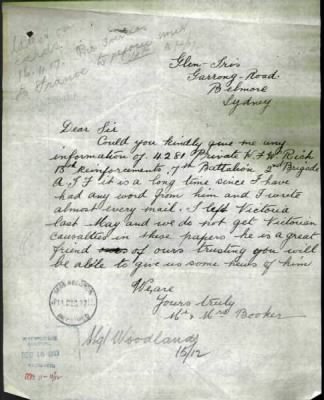 Glen-Iris
Garrong-Road
Belmore
Sydney
Dear Sir
Could you kindly give me any
information of 4281 Private
13th reinforcements, 7th Battalion 2nd Brigade
A.I.F it is a long time since I have
had any word from him and I write
almost every mail. I left Victoria
last May and we do not get Victorian
causalties in these papers he is a great
friend of ours trusting you will
be able to give us some news of him
We are
Yours truly
Mr & Mrs Booker
Woodlands
15/12